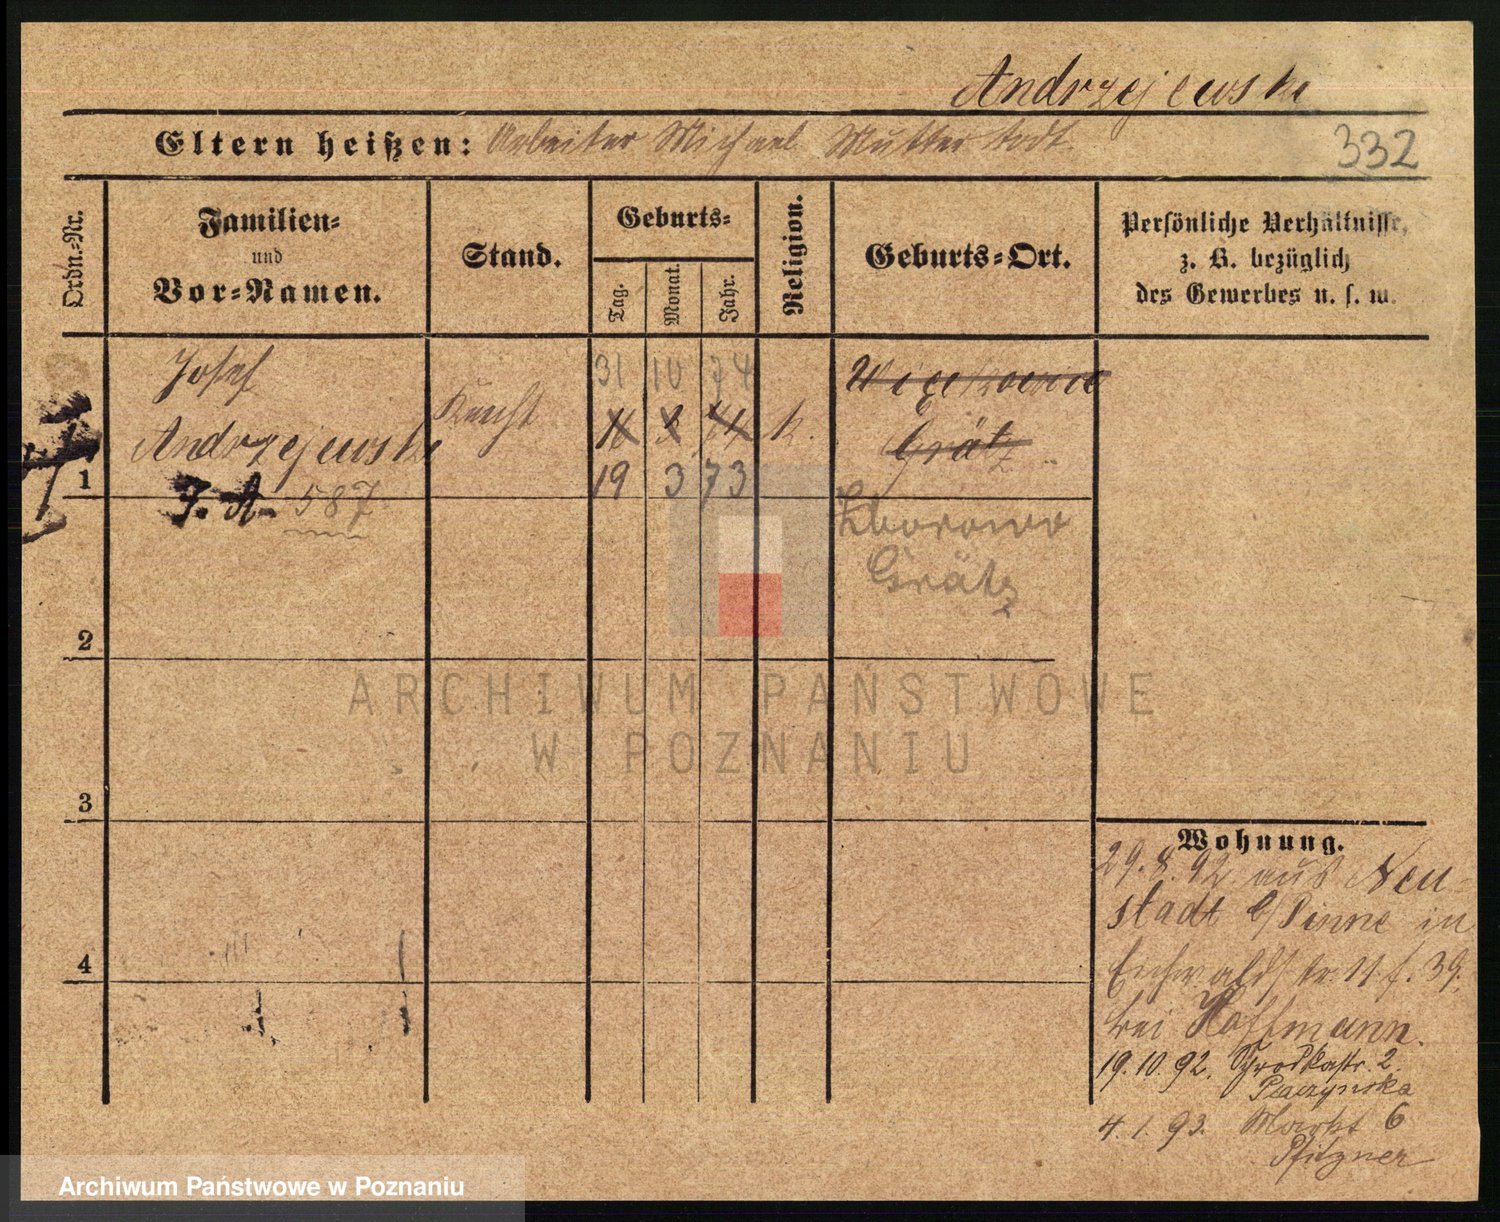 Andrzejewski
Eltern heißen: Arbeiter Michael Mutter todt
332
Ordn.-Nr.
Familien-
und
Vor-Namen.
Stand.
Geburts-
Tag.
Monat.
Jahr.
Religion.
Geburts-Ort.
Persönliche Verhältnisse,
z. B. bezüglich
des Gewerbes u. s. w.
Josef
31 10 74
Andrzejewski
Knecht
k.
Grätz
1
19 3 73
J. A. 587
Grätz
2
3
4
Wohnung.
29. 8. 92 aus Neu-
stadt b/Pinne in
Eichwaldstr. 39.
bei Hoffmann.
19. 10. 92. Schrodkastr. 2.
4. 1. 93. Markt 6
Pfitzner
ARCHIWUM PAŃSTWOWE
W POZNANIU
Archiwum Państwowe w Poznaniu